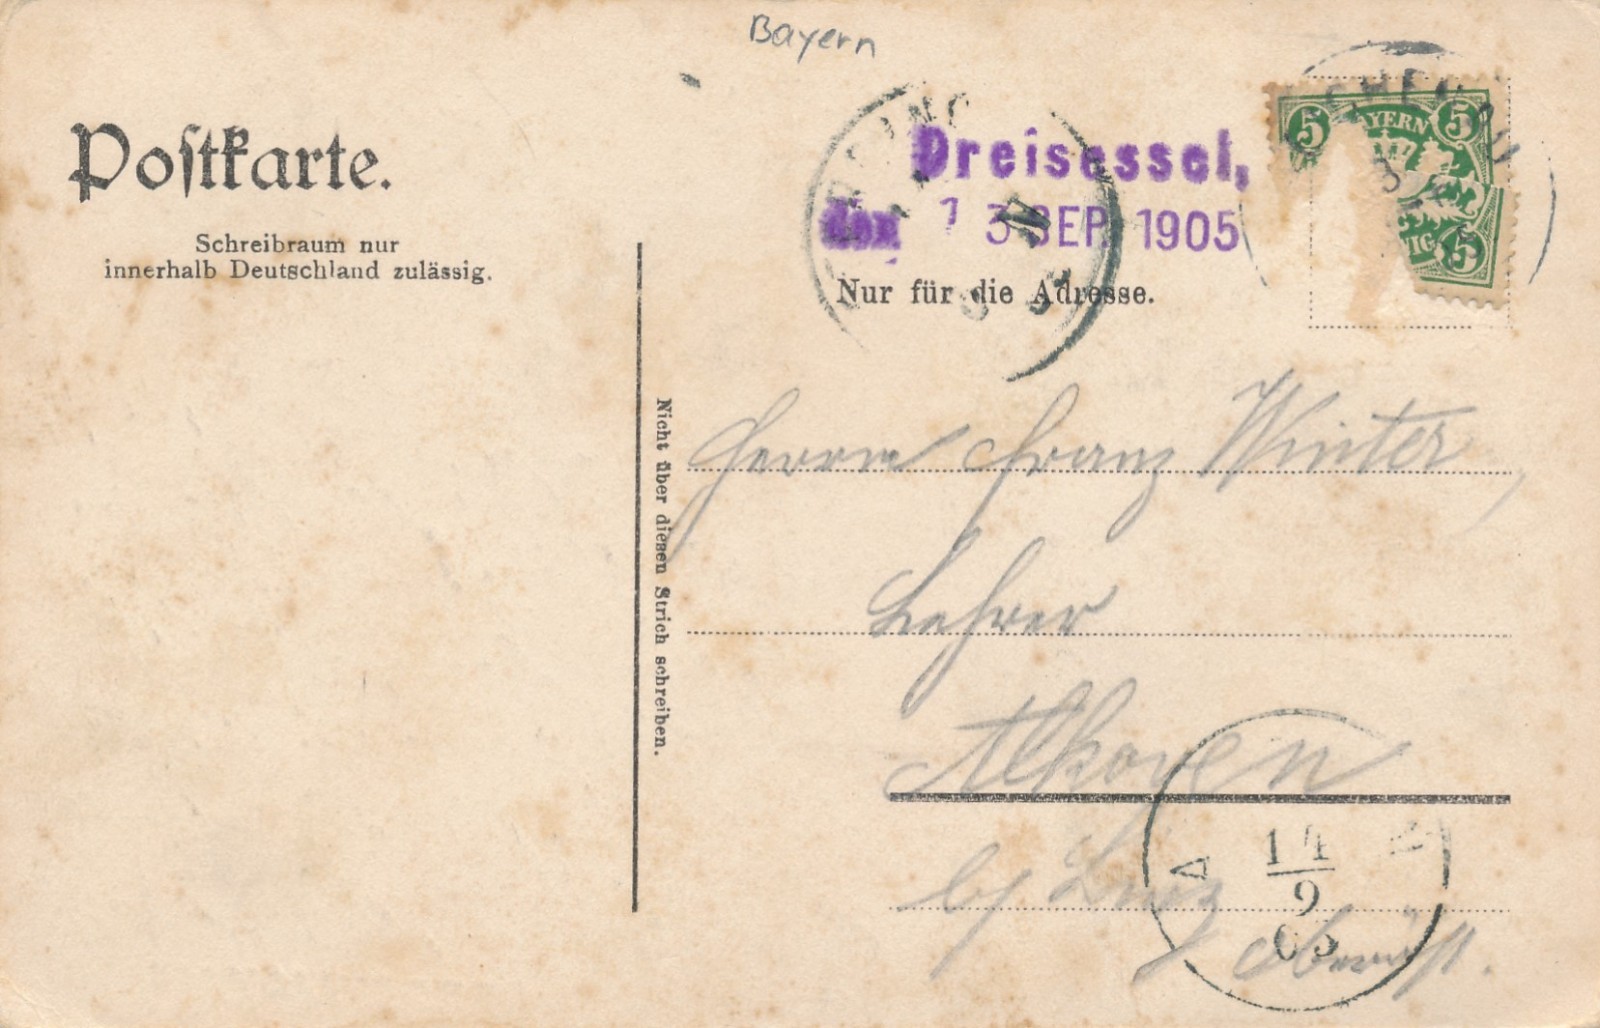 Bayern
Postkarte.
Schreibraum nur
innerhalb Deutschland zulässig.
Dreisessel,
den 13 SEP 1905
Nur für die Adresse.
5 BAYERN 5
5
Nicht über diesen Strich schreiben.
Herrn Franz Winter,
Lehrer
Alkoven
b/ Linz
Oberöst.
14
9
05